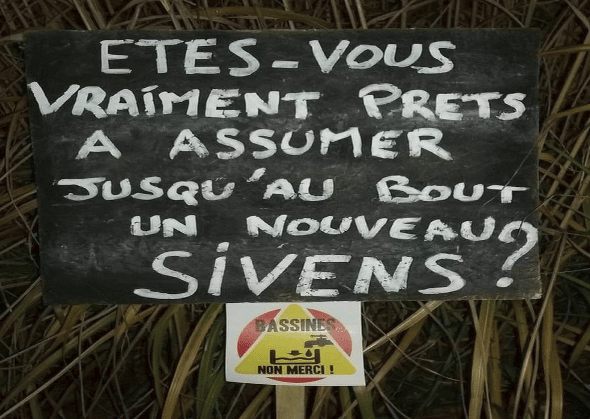 ETES-VOUS
VRAiMENT PRETS
A ASSUMER
JUSQU'AU BOUT
UN NOUVEAU
SiVENS?
BASSINES
NON MERCI !